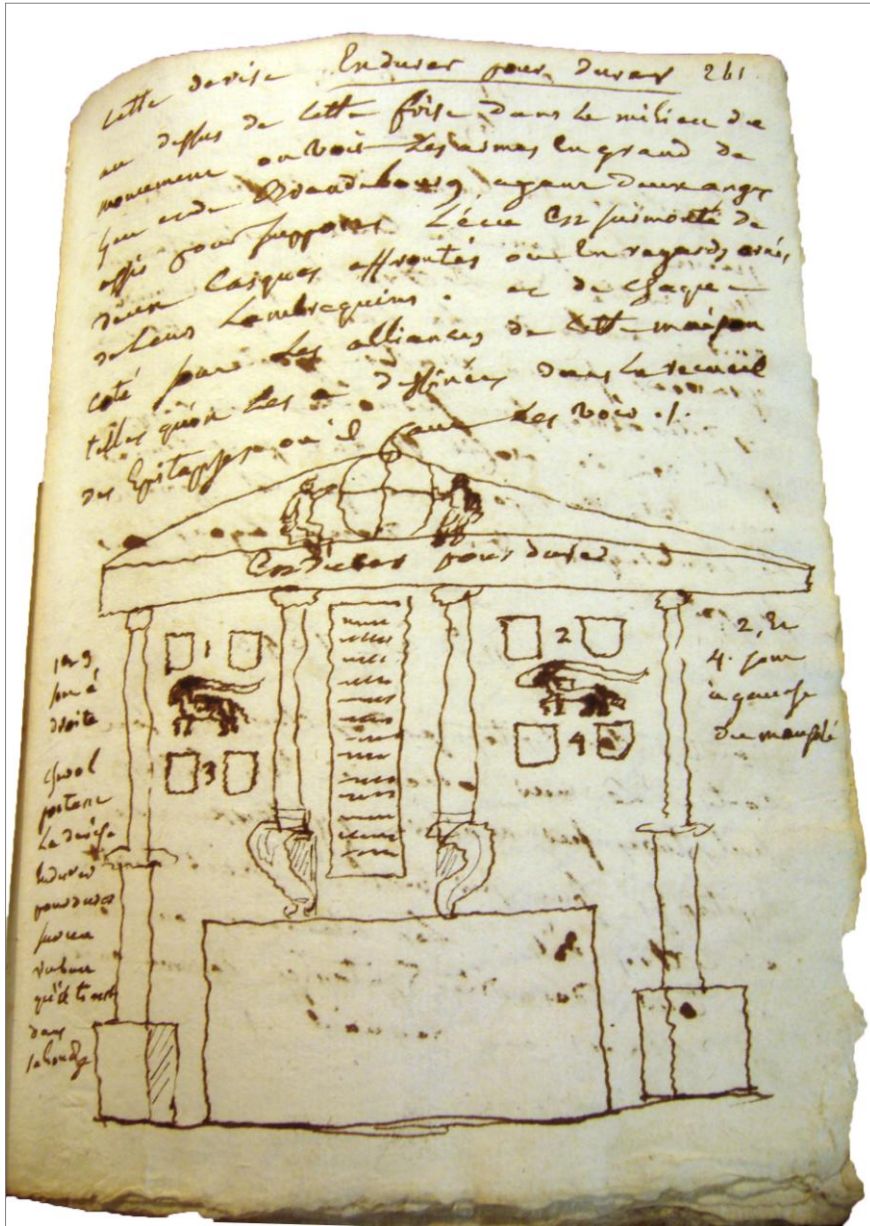 Cette devise Endurer pour durer 261
au dessus de cette frise dans le milieu du
monument on voit les armes en grand de
de Brandebourg ayant deux anges
assis pour support. L'écu est surmonté de
deux Casques affrontés ou en regards ornés
de leurs Lambrequins. et de chaque
coté sont les alliances de cette maison
telles qu'on les a dessinées dans le recueil
des Epitaphes ou il faut les voir ./.
Endurer pour durer
1 2
3 4
1 et 3
sont à
droite
2, et
4. sont
à gauche
du mausolé
portant
la devise
Endurer
pour durer
sur un
ruban
qu'il tient
dans